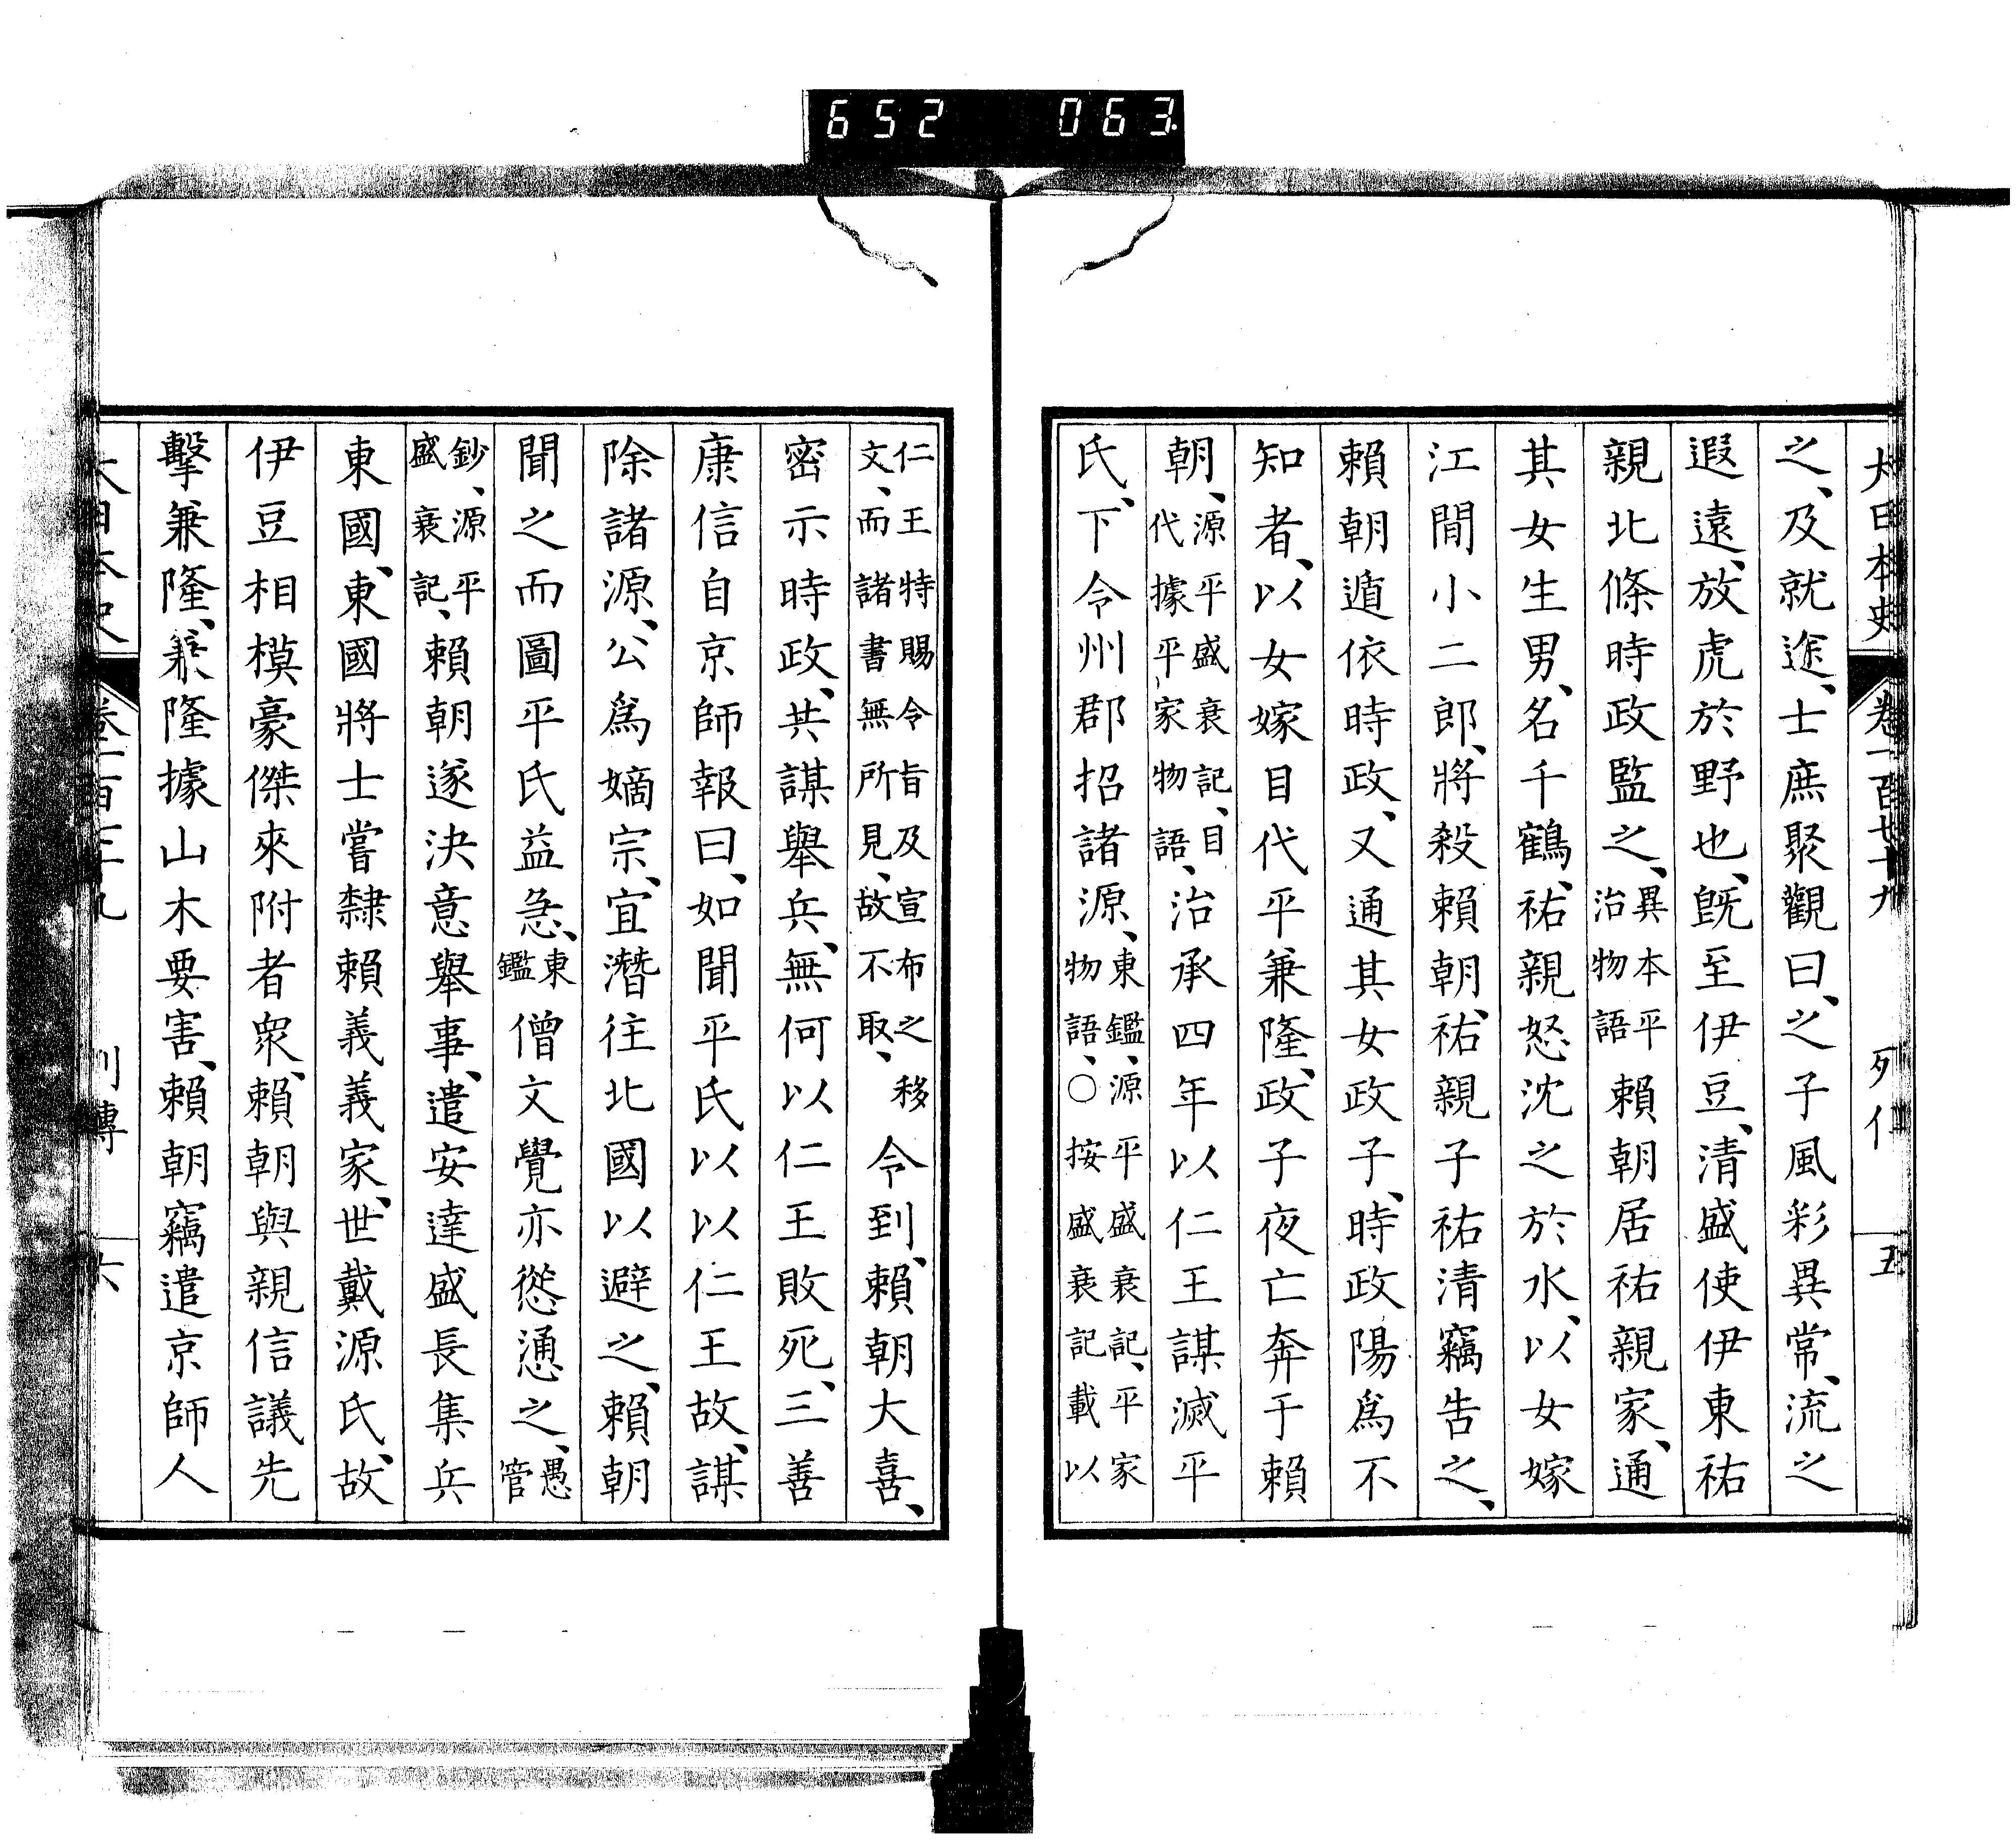 652 063
大日本史 卷一百七十九 列傳 五
之、及就途、士庶聚觀曰、之子風彩異常、流之
遐遠、放虎於野也、旣至伊豆、清盛使伊東祐
親北條時政監之、異本平治物語 賴朝居祐親家、通
其女生男、名千鶴、祐親怒沈之於水、以女嫁
江間小二郎、將殺賴朝、祐親子祐清竊告之、
賴朝遁依時政、又通其女政子、時政陽爲不
知者、以女嫁目代平兼隆、政子夜亡奔于賴
朝、源平盛衰記、目代據平家物語、治承四年以仁王謀滅平
氏、下令州郡招諸源、東鑑、源平盛衰記、平家物語、○按盛衰記載以
仁王特賜令旨及宣布之移文、而諸書無所見、故不取、令到、賴朝大喜、
密示時政、共謀舉兵、無何以仁王敗死、三善
康信自京師報曰、如聞平氏以以仁王故、謀
除諸源、公爲嫡宗、宜潛往北國以避之、賴朝
聞之而圖平氏益急、東鑑 僧文覺亦慫慂之、愚管
鈔、源平盛衰記、賴朝遂決意舉事、遣安達盛長集兵
東國、東國將士嘗隸賴義義家、世戴源氏、故
伊豆相模豪傑來附者衆、賴朝與親信議先
擊兼隆、兼隆據山木要害、賴朝竊遣京師人
大日本史 卷一百七十九 列傳 六